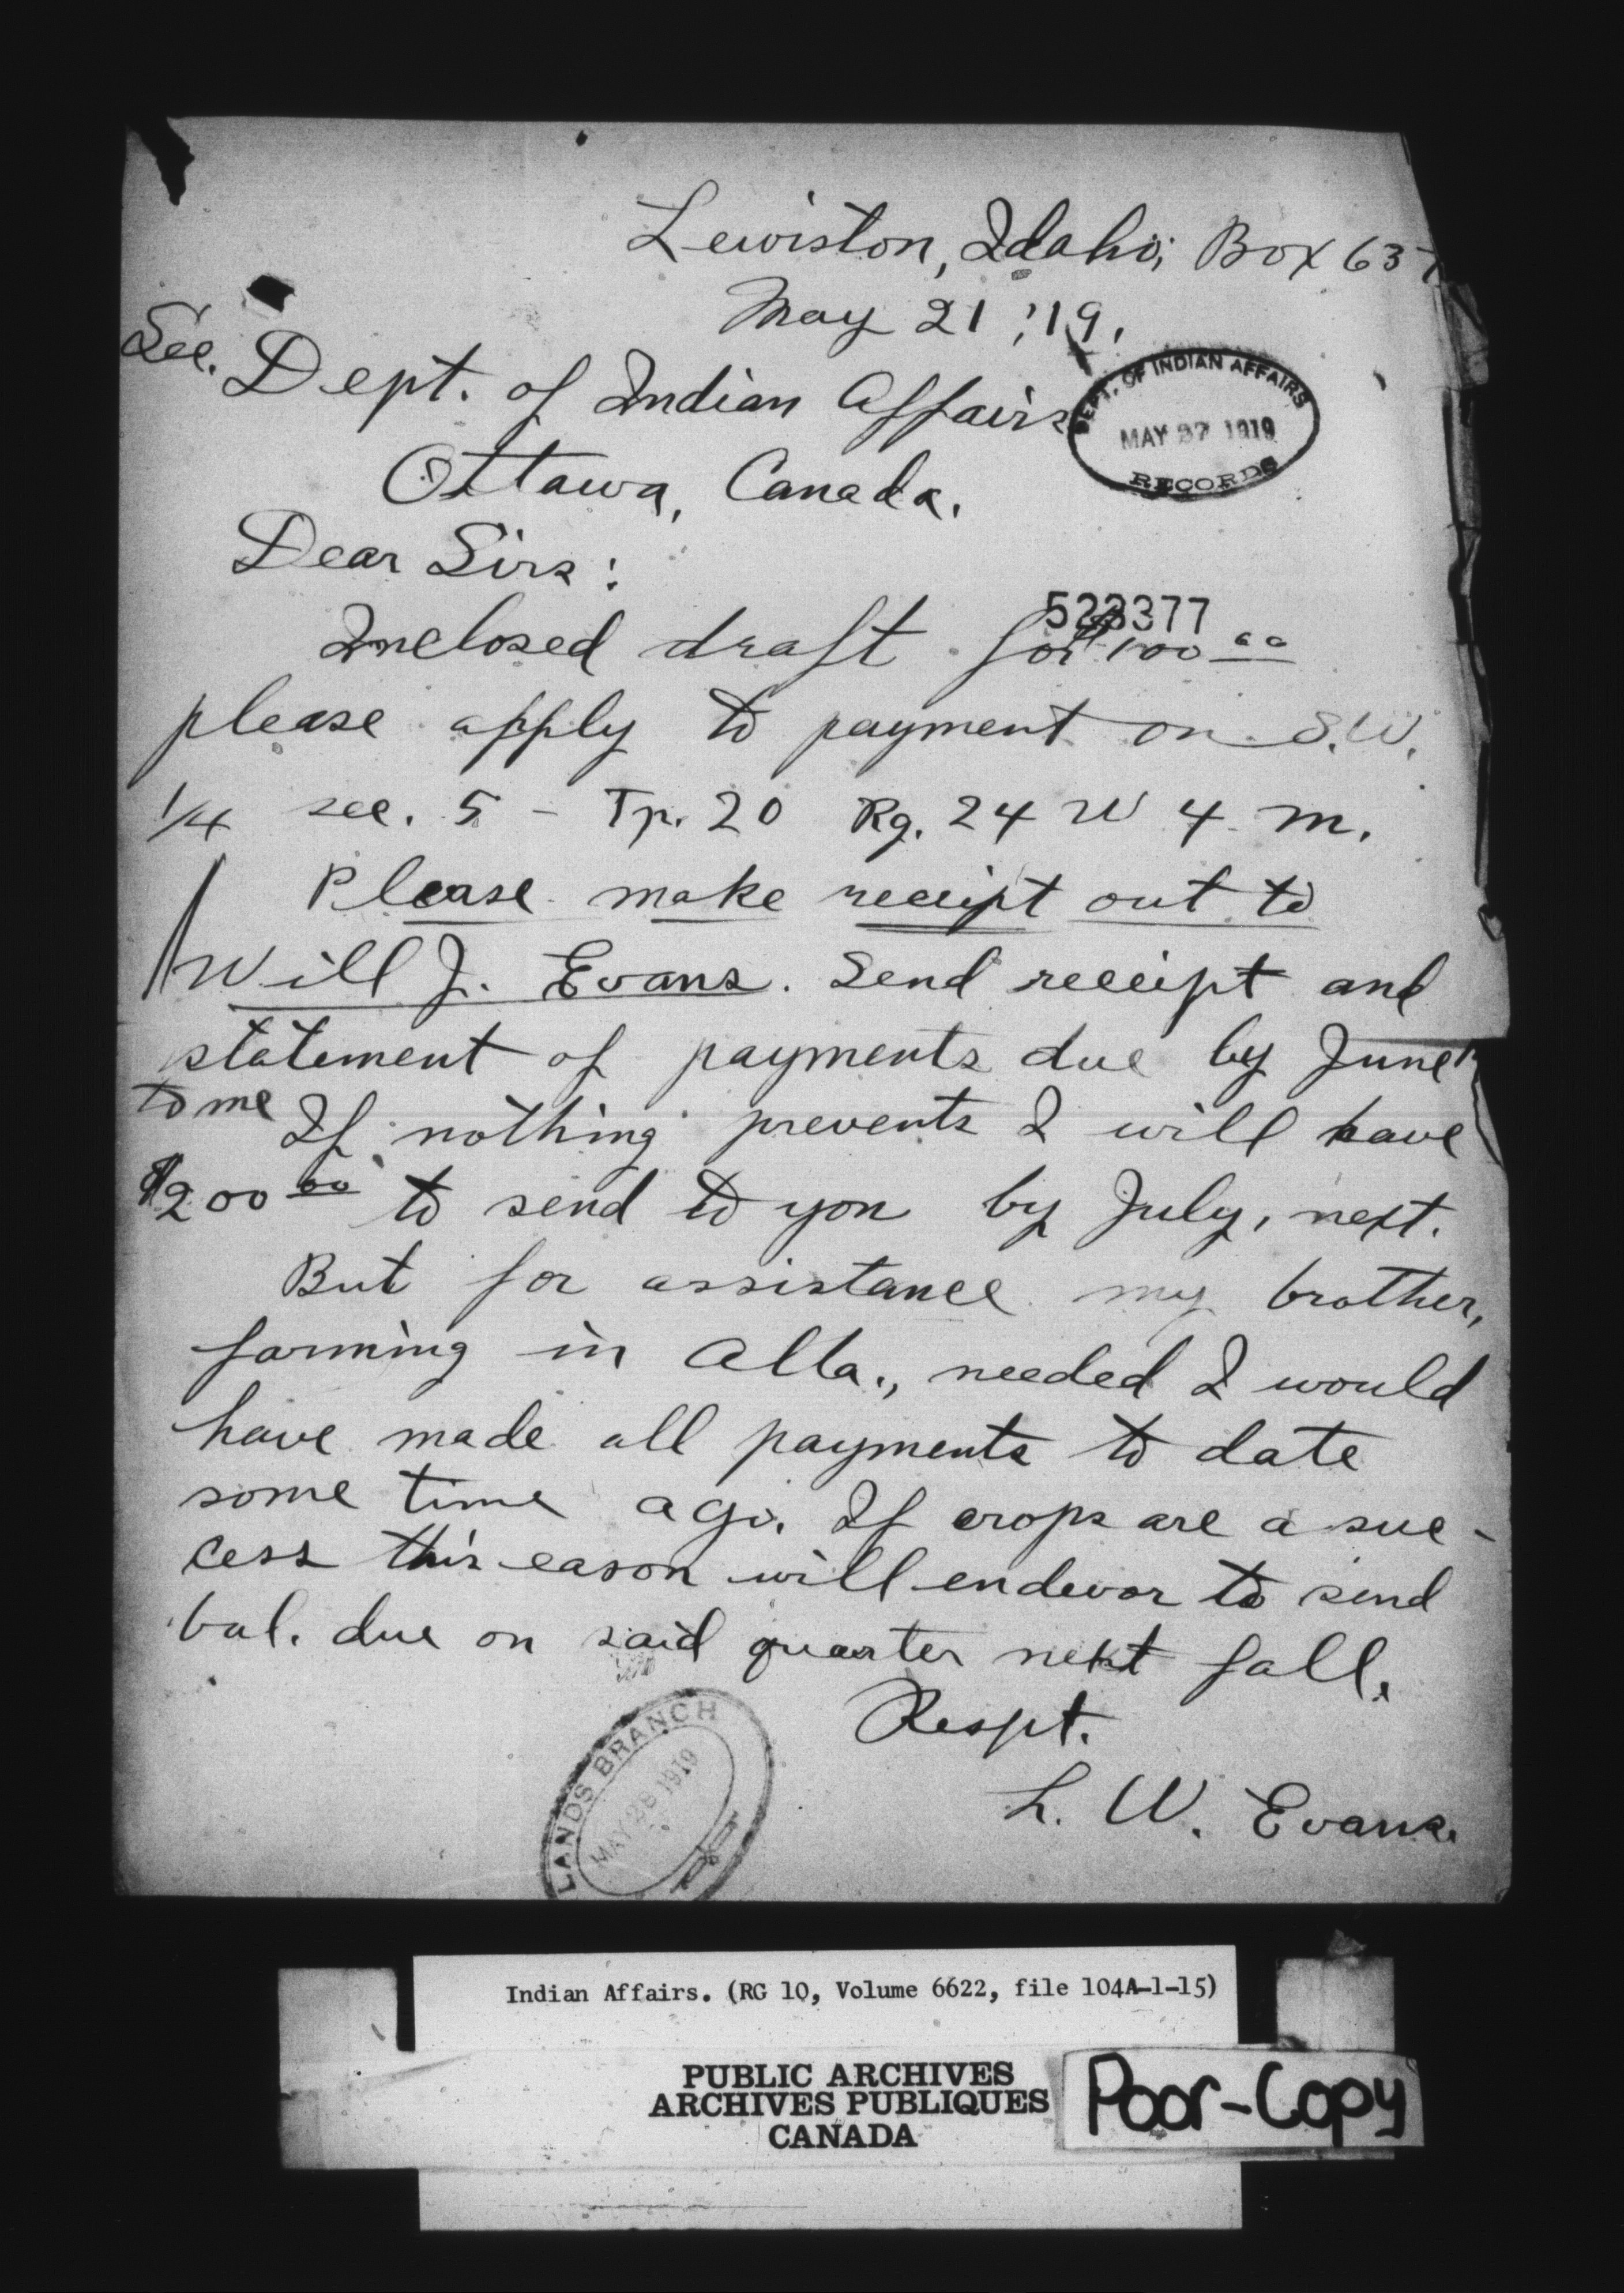 Lewiston, Idaho; Box 637
May 21, '19.
Sec. Dept. of Indian Affairs
DEPT. OF INDIAN AFFAIRS
MAY 27 1919
RECORDS
Ottawa, Canada.
Dear Sirs:
523377
Inclosed draft for $100 00
please apply to payment on S.W.
1/4 sec. 5 - Tp. 20 Rg. 24 W 4 M.
Please make receipt out to
Will J. Evans. Send receipt and
statement of payments due by June
to me
If nothing prevents I will have
$200 00 to send to you by July, next.
But for assistance my brother,
farming in Alta., needed I would
have made all payments to date
some time ago. If crops are a suc-
cess this eason will endevor to send
bal. due on said quarter next fall.
Respt.
L. W. Evans.
LANDS BRANCH
MAY 28 1919
Indian Affairs. (RG 10, Volume 6622, file 104A-1-15)
PUBLIC ARCHIVES
ARCHIVES PUBLIQUES
CANADA
Poor-Copy